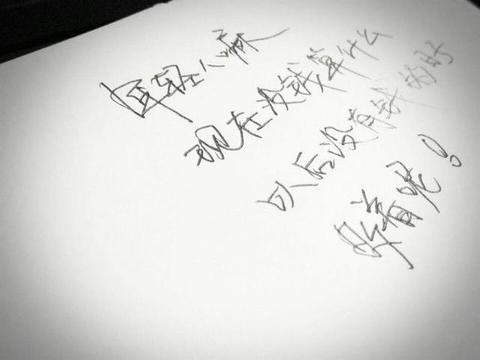 年轻人嘛
现在没钱算什么
以后没有钱的时
候着呢！